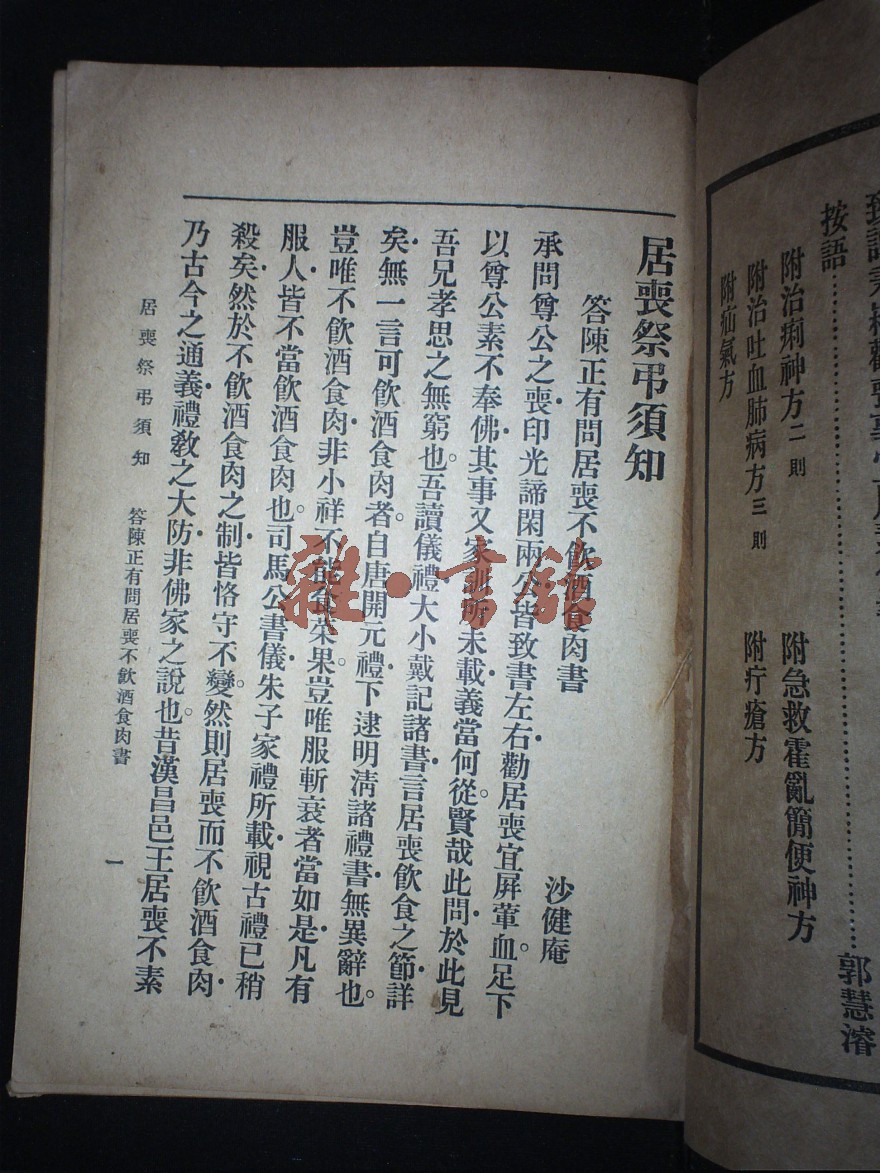 按語……郭慧濬
附治痢神方二則
附急救霍亂簡便神方
附治吐血肺病方三則
附疔瘡方
附疝氣方
居喪祭弔須知
答陳正有問居喪不飲酒食肉書
沙健庵
承問尊公之喪·印光諦閑兩公·皆致書左右·勸居喪宜屏葷血。足下
以尊公素不奉佛·其事又家訓所未載·義當何從。賢哉此問·於此見
吾兄孝思之無窮也。吾讀儀禮大小戴記諸書·言居喪飲食之節詳
矣·無一言可飲酒食肉者·自唐開元禮·下逮明清諸禮書·無異辭也。
豈唯不飲酒食肉·非小祥·不能食菜果。豈唯服斬衰者當如是·凡有
服人·皆不當飲酒食肉也。司馬公書儀·朱子家禮所載·視古禮已稍
殺矣·然於不飲酒食肉之制·皆恪守不變。然則居喪而不飲酒食肉·
乃古今之通義·禮教之大防·非佛家之說也。昔漢昌邑王居喪不素
居喪祭弔須知 答陳正有問居喪不飲酒食肉書 一
雜·書館